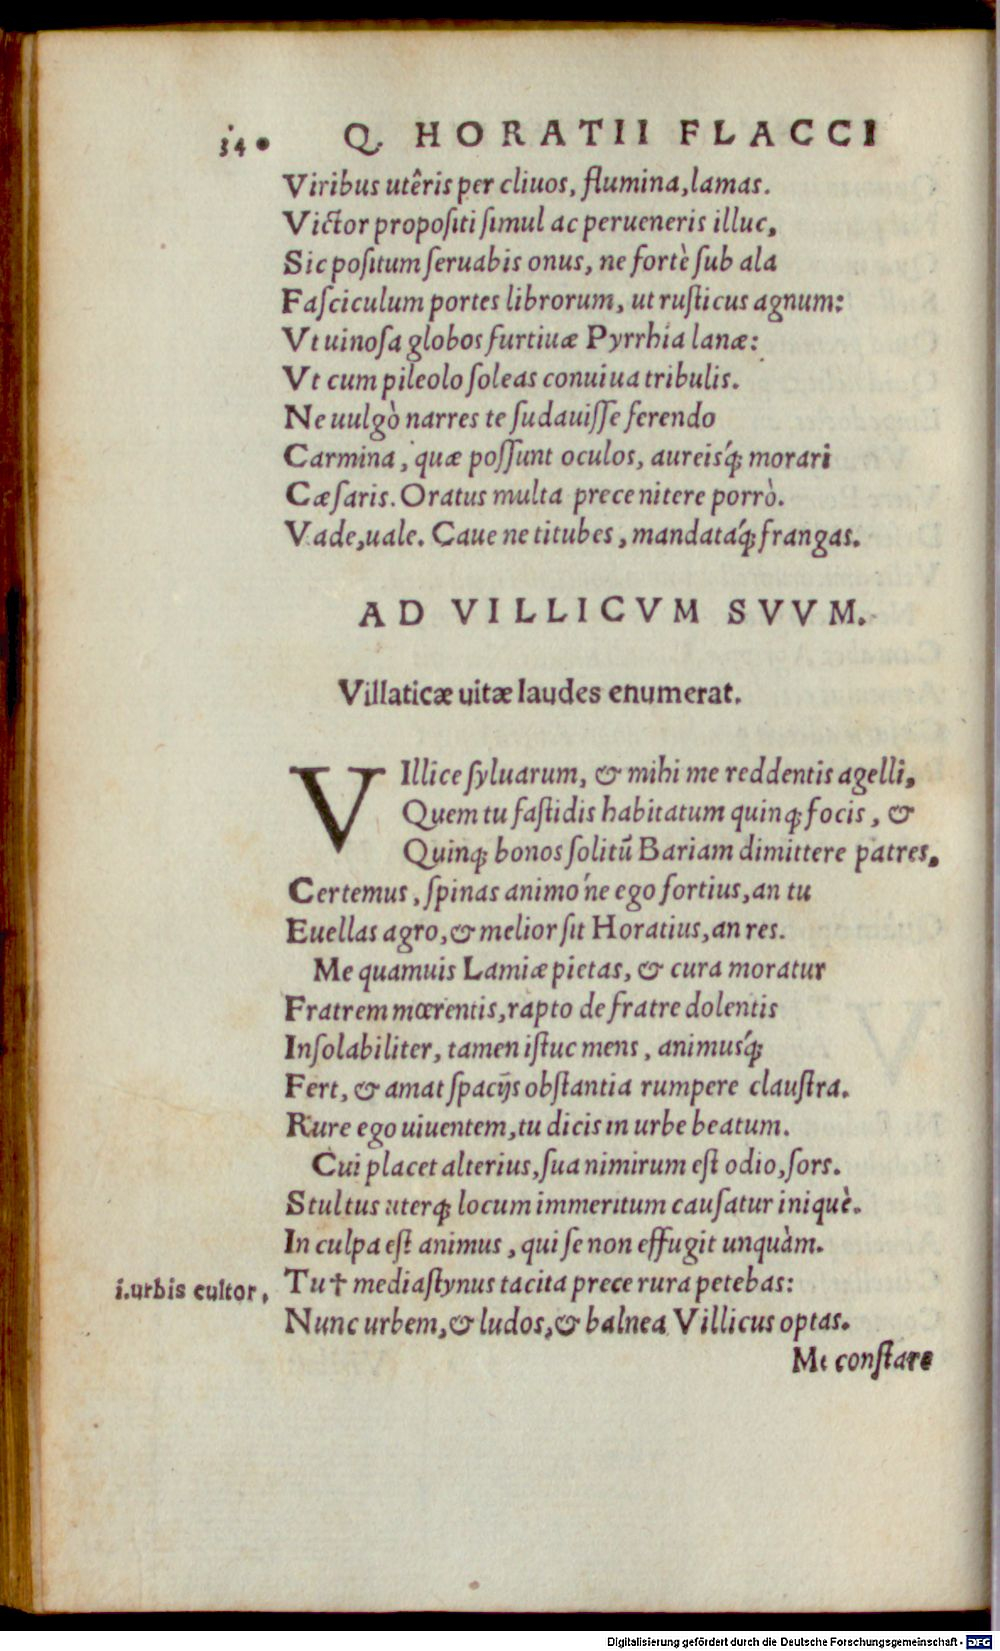 34• Q. HORATII FLACCI
Viribus utêris per cliuos, flumina, lamas.
Victor propositi simul ac perueneris illuc,
Sic positum seruabis onus, ne fortè sub ala
Fasciculum portes librorum, ut rusticus agnum:
Vt uinosa globos furtiuæ Pyrrhia lanæ:
Vt cum pileolo soleas conuiua tribulis.
Ne uulgò narres te sudauisse ferendo
Carmina, quæ possunt oculos, aureisq́; morari
Cæsaris. Oratus multa prece nitere porrò.
Vade, uale. Caue ne titubes, mandataq́; frangas.
AD VILLICVM SVVM.
Villaticæ uitæ laudes enumerat.
VIllice syluarum, & mihi me reddentis agelli,
Quem tu fastidis habitatum quinq; focis, &
Quinq; bonos solitũ Bariam dimittere patres,
Certemus, spinas animo ́ne ego fortius, an tu
Euellas agro, & melior sit Horatius, an res.
Me quamuis Lamiæ pietas, & cura moratur
Fratrem mœrentis, rapto de fratre dolentis
Insolabiliter, tamen istuc mens, animusq́;
Fert, & amat spacijs obstantia rumpere claustra.
Rure ego uiuentem, tu dicis in urbe beatum.
Cui placet alterius, sua nimirum est odio, sors.
Stultus uterq; locum immeritum causatur iniquè.
In culpa est animus, qui se non effugit unquàm.
i. urbis cultor, Tu † mediastynus tacita prece rura petebas:
Nunc urbem, & ludos, & balnea Villicus optas.
Me constare
Digitalisierung gefördert durch die Deutsche Forschungsgemeinschaft - DFG